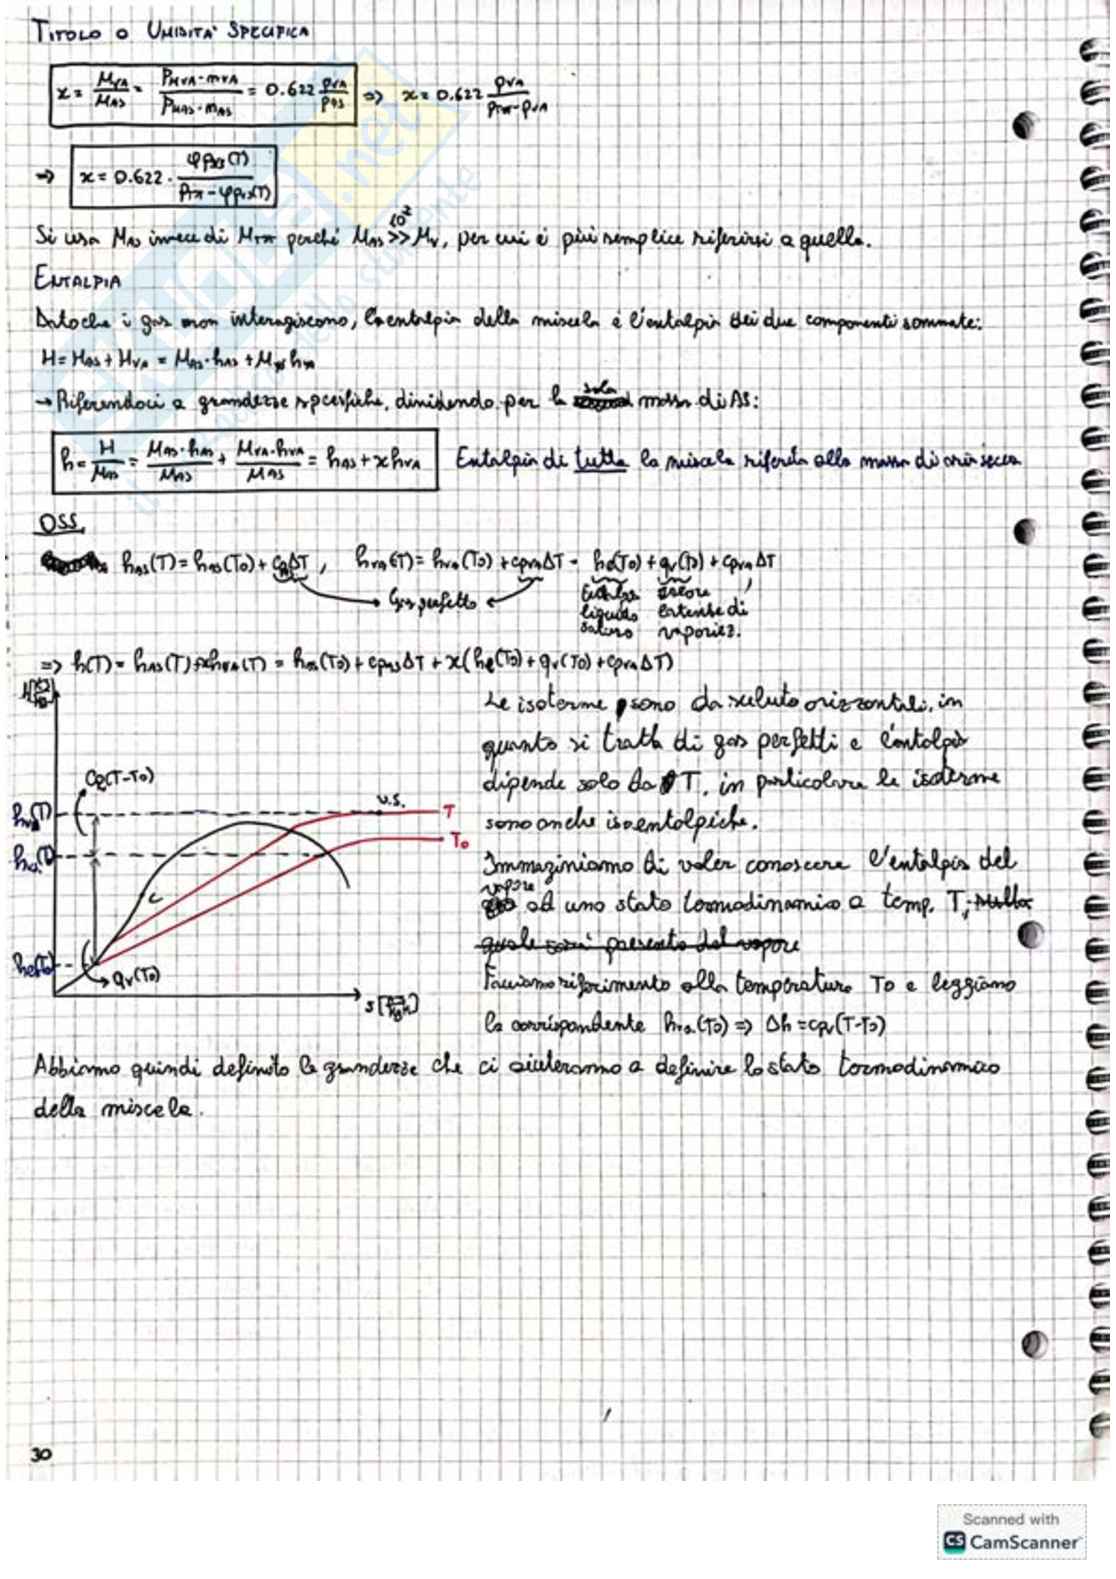 TITOLO O UMIDITA' SPECIFICA
x = M_VA/M_AS = p_VA·m_VA/p_AS·m_AS = 0.622 p_VA/p_AS => x = 0.622 p_VA/p_TOT-p_VA
=> x = 0.622 · φp_VS(T)/p_TOT-φp_VS(T)
Si usa M_AS invece di M_TOT perché M_AS >> M_V, per cui è più semplice riferirsi a quella.
10²
ENTALPIA
Dato che i gas non interagiscono, l'entalpia della miscela è l'entalpia dei due componenti sommate:
H = H_AS + H_VA = M_AS·h_AS + M_VA h_VA
→ Riferendoci a grandezze specifiche, dividendo per la sola massa di AS:
h = H/M_AS = M_AS·h_AS/M_AS + M_VA·h_VA/M_AS = h_AS + x h_VA Entalpia di tutta la miscela riferita alla massa di aria secca
OSS.
h_AS(T) = h_AS(T0) + cp_AS ΔT, h_VA(T) = h_VA(T0) + cp_VA ΔT = h_l(T0) + q_v(T0) + cp_VA ΔT
Gas perfetto
Entalpia liquido saturo
calore latente di vaporizz.
=> h(T) = h_AS(T) + x h_VA(T) = h_AS(T0) + cp_AS ΔT + x(h_l(T0) + q_v(T0) + cp_VA ΔT)
Le isoterme sono da seluto orizzontali, in
quanto si tratta di gas perfetti e l'entalpia
dipende solo da T, in particolare le isoterme
sono anche isoentalpiche.
Immaginiamo di voler conoscere l'entalpia del
vapore ad uno stato termodinamico a temp. T, sulla
quale sarà presente del vapore
Facciamo riferimento alla temperatura T0 e leggiamo
la corrispondente h_VA(T0) => Δh = cp_v(T-T0)
(T-T0)
v.s.
T
T0
c
h_l(T0)
q_v(T0)
Abbiamo quindi definito le grandezze che ci aiuteranno a definire lo stato termodinamico
della miscela.
30
Scanned with
CS CamScanner